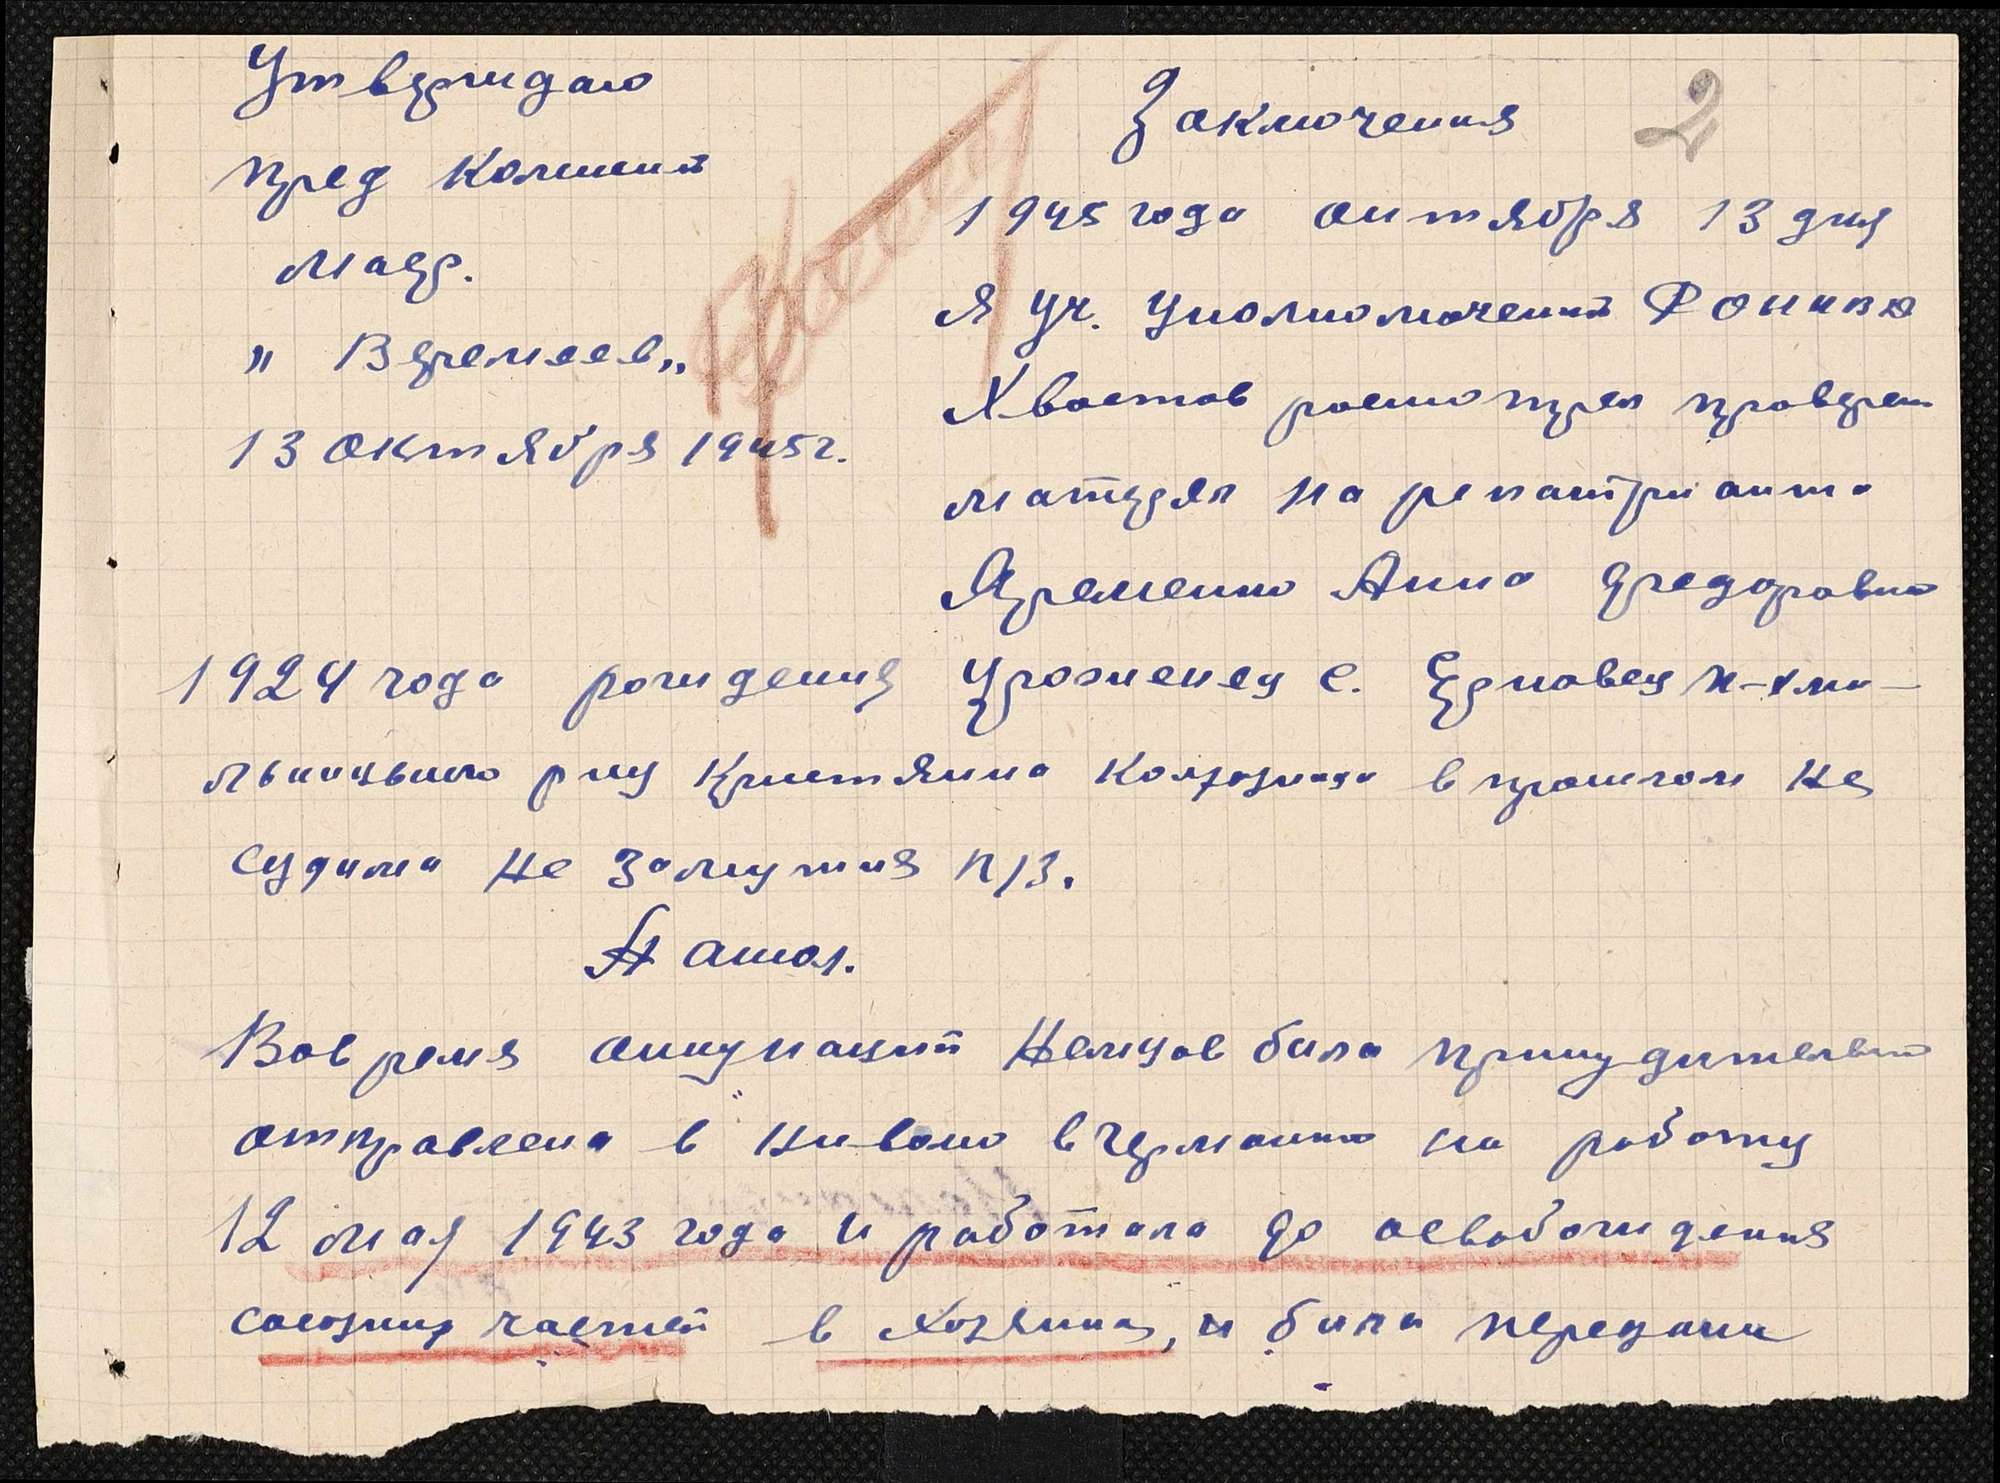 Утверждаю
пред комисий
Маер.
" Веремеев "
13 октября 1945 г.
2
Заключения
1945 года октября 13 дня
Я уч. уполномочений
Хвостов росмотрел проверен
матерял на репатрианта
Яременко Анна Федоровна
1924 года рождения уроженец с.
р-ну кристянка колхозница в прошлом не
судима не замужния
Нашол.
Вовремя оккупаций Немцов била принудительно
отправлена в неволю в Германию на работу
12 мая 1943 года и работала до освобождения
союзних частей в хозяина, и била передана